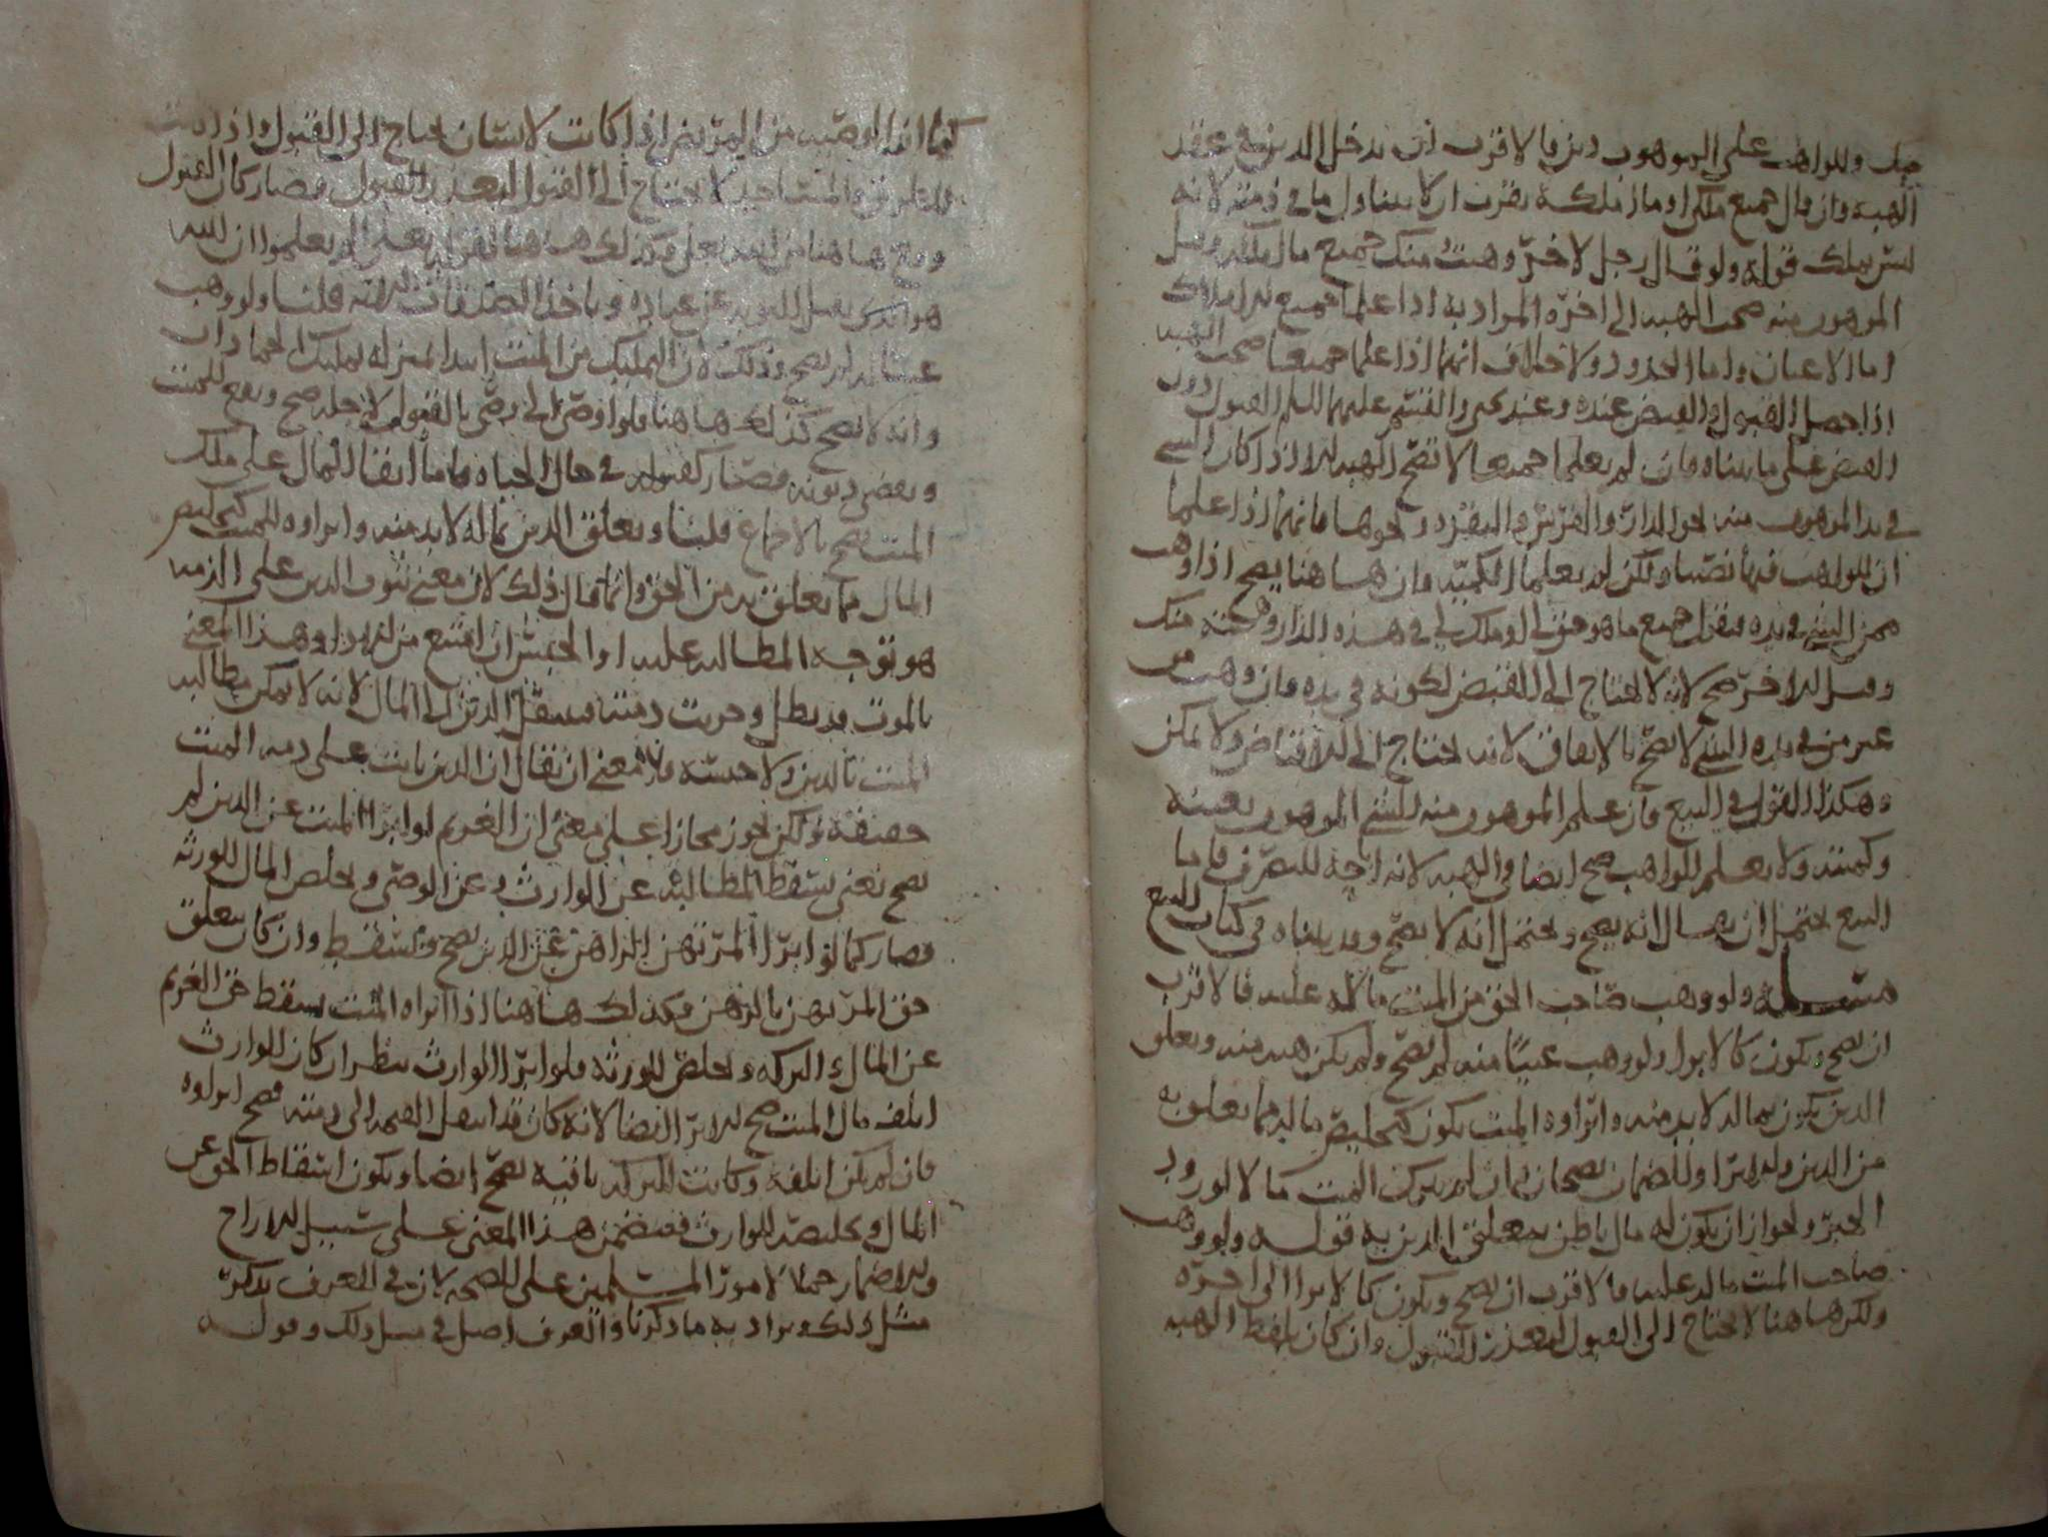 وللواهب على الموهوب دين فالاقرب ان يدخل الدين في عقد
الهبه وان قال جميع ملكي او ما املكه يقرب ان لا يتناول ما في ذمته لانه
ليس بملك قوله ولو قال رجل لاخر وهبت منك جميع ما املكه وقبل
الموهوب منه صحت الهبه الى اخره المراد به اذا علما جميع الاملاك
اما الاعيان واما الحدود ولا خلاف انهما اذا علما جميعا صحت الهبه
اذا حصل القبول والقبض عنده وعند يحيى والقسم عليهما السلم القبول دون
القبض على ما بيناه فان لم يعلما جميعا لا تصح الهبه الا اذا كان الشي
في يد الموهوب منه نحو الدار والفرس والبقره ونحوها فانهما اذا علما
ان للواهب فيها نصيبا ولكن لم يعلما الكميه وان هاهنا يصح اذا وهب
ممن الشي في يده فيقول جميع ما هو حق لي او ملك لي في هذه الدار وهبته منك
وقبل الاخر صح لانه لا يحتاج الى القبض لكونه في يده فان وهب من
غير من في يده الشي لا يصح بالاتفاق لانه يحتاج الى الاقباض ولا يمكن
وهكذا القول في البيع فان علم الموهوب منه الشي الموهوب بعينه
وكميته ولا يعلم الواهب صح ايضا في الهبه لانه اباحه للتصرف فاما
البيع يحتمل ان يقال انه يصح ويحتمل انه لا يصح وقد بيناه في كتاب البيع
مسله ولو وهب صاحب الحق من الميت ماله عليه فالاقرب
ان يصح ويكون كالابرا ولو وهب عينا منه لم يصح ولم يكن هبه منه وتعلق
الدين يكون بماله لا بد منه وابراوه الميت يكون كتخليص ماله مما تعلق به
من الدين والابرا والضمان يصحان فان لم يترك الميت مالا لورود
الخبر ولجواز ان يكون له مال باطن يتعلق الدين به قوله ولو وهب
صاحب الميت ماله عليه فالاقرب ان يصح ويكون كالابرا الى اخره
ولكن هاهنا لا يحتاج الى القبول لتعذر القبول وان كان بلفظ الهبه
كما ان الوصيه من المريض اذا كانت لانسان يحتاج الى القبول واذا كانت
لا يحتاج الى القبول لتعذر القبول فصار كان القبول
وقع هاهنا من الله تعلى وكذلك هاهنا لقوله تعلى الم يعلموا ان الله
هو الذي يقبل التوبه عن عباده وياخذ الصدقات قلنا ولو وهب
عينا له لم يصح وذلك لان التمليك من الميت ابتدا بمنزله تمليك الجمادات
وانه لا يصح كذلك هاهنا ولو اوصى الى وصي بالقبول لاجله صح ويقع للميت
ويقضى ديونه فصار كقبوله في حال الحياه فاما ابقا المال على ملك
الميت يصح بالاجماع قلنا وتعلق الدين بماله لا بد منه وابراوه للميت كتخليص
المال مما تعلق به من الحق وانما قال ذلك لان معنى ثبوت الدين على الذمه
هو توجه المطالبه عليه او الحبس ان امتنع من الاداء وهذا المعنى
بالموت قد بطل وخربت ذمته فينتقل الدين الى المال لانه لا يمكن مطالبه
الميت بالدين ولا حبسه فلا معنى ان يقال ان الدين ثابت على ذمه الميت
حقيقه ولكن يجوز مجازا على معنى ان الغريم لو ابرا الميت عن الدين لم
يصح يعني يسقط المطالبه عن الوارث وعن الوصي ويخلص المال للورثه
فصار كما لو ابرا المرتهن الراهن عن الدين يصح ويسقط وان كان يتعلق
حق المرتهن بالرهن فكذلك هاهنا اذا ابراه الميت يسقط حق الغريم
عن المال والتركه ويخلص للورثه فلو ابرا الوارث ينظر ان كان الوارث
اتلف مال الميت صح الابرا ايضا لانه كان قد انتقل الضمان الى ذمته فصح ابراوه
فان لم يكن اتلفه وكانت التركه باقيه يصح ايضا ويكون اسقاط الحق عن
المال وتخليصه للوارث فيتضمن هذا المعنى على سبيل الادراج
والاضمار حملا لامور المسلمين على الصحه لان في العرف يذكر
مثل ذلك ويراد به ما ذكرنا والعرف اصل في مثل ذلك وقوله